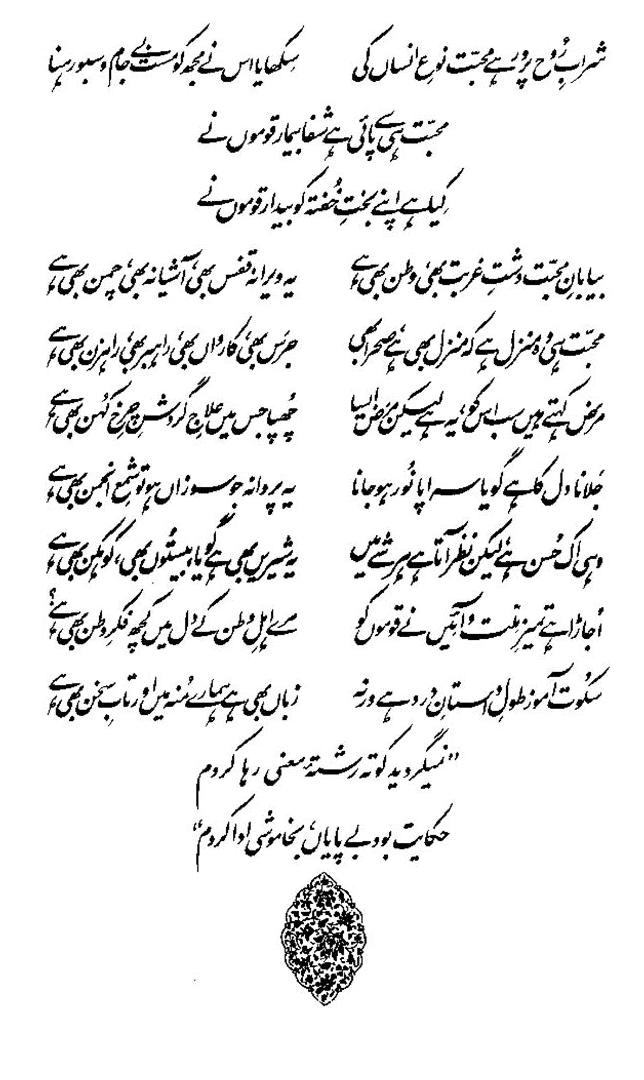 شرابِ رُوح پرور ہے محبّت نوعِ انساں کی سِکھایا اس نے مجھ کو مست بے جام و سبو رہنا
محبّت ہی سے پائی ہے شفا بیمار قوموں نے
کِیا ہے اپنے بختِ خُفتہ کو بیدار قوموں نے
بیابانِ محبّت دشتِ غربت بھی، وطن بھی ہے یہ ویرانہ قفس بھی، آشیانہ بھی، چمن بھی ہے
محبّت ہی وہ منزل ہے کہ منزل بھی ہے، صحرا بھی جرَس بھی، کارواں بھی، راہبر بھی، راہزن بھی ہے
مرَض کہتے ہیں سب اس کو، یہ ہے لیکن مرَض ایسا چھُپا جس میں علاجِ گردشِ چرخِ کُہن بھی ہے
جَلانا دل کا ہے گویا سراپا نُور ہو جانا یہ پروانہ جو سوزاں ہو تو شمعِ انجمن بھی ہے
وہی اک حُسن ہے، لیکن نظر آتا ہے ہر شے میں یہ شیریں بھی ہے گویا، بیستُوں بھی، کوہکن بھی ہے
اُجاڑا ہے تمیزِ ملّت و آئِیں نے قوموں کو مرے اہلِ وطن کے دل میں کچھ فکرِ وطن بھی ہے؟
سکُوت آموز طولِ داستانِ درد ہے ورنہ زباں بھی ہے ہمارے مُنہ میں اور تابِ سخن بھی ہے
”نمیگردید کوتہ رشتۂ معنی رہا کردم
حکایت بود بے پایاں، بخاموشی ادا کردم“